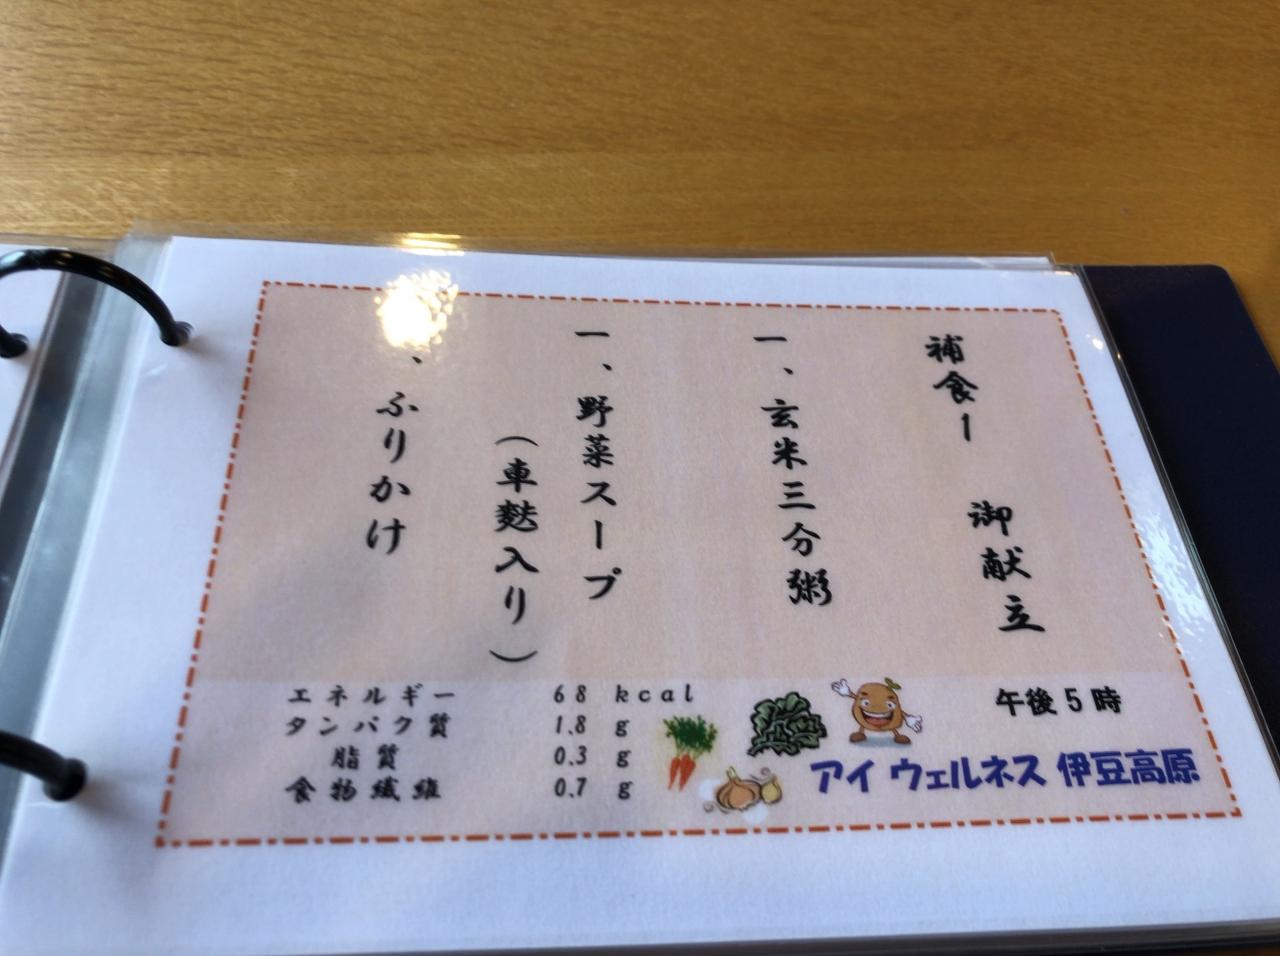 補食1 御献立
一、玄米三分粥
一、野菜スープ
(車麩入り)
、ふりかけ
エネルギー 68 kcal
タンパク質 1.8 g
脂質 0.3 g
食物繊維 0.7 g
午後5時
アイ ウェルネス 伊豆高原